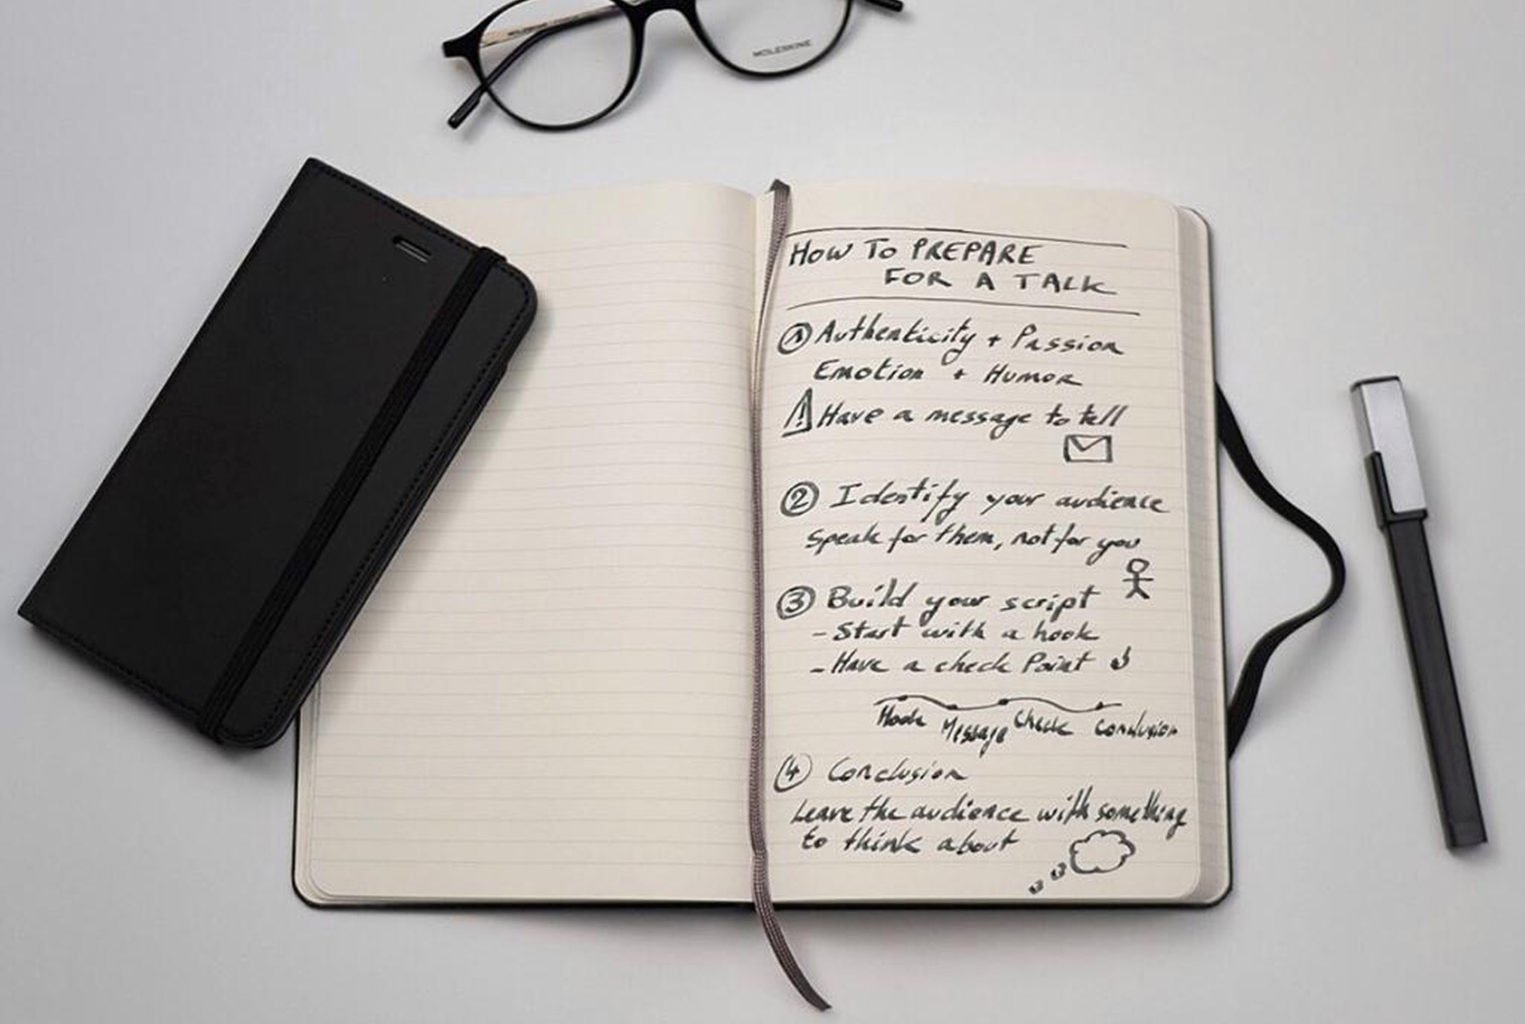 MOLESKINE
HOW TO PREPARE
FOR A TALK
1 Authenticity + Passion
Emotion + Humor
! Have a message to tell
2 Identify your audience
Speak for them, not for you
3 Build your script
- Start with a hook
- Have a check Point
Hook Message Check Conclusion
4 Conclusion
Leave the audience with something
to think about